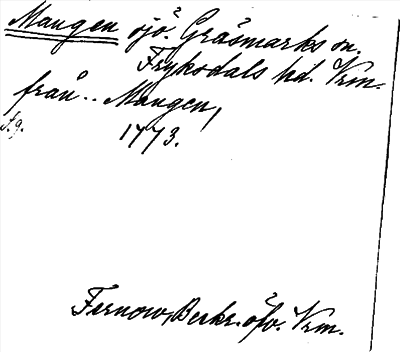 Mangen sjö. Gräsmarks sn.
Fryksdals hd. Vrm.
från .. Mangen,
s. 9. 1773.
Fernow, Beskr. öfv. Vrm.